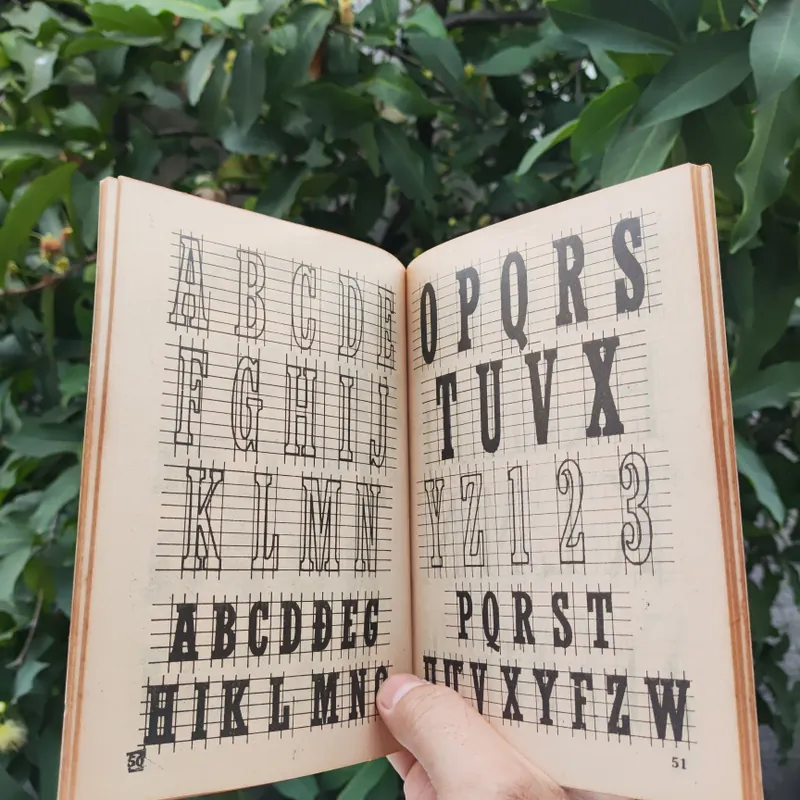 A B C D E
F G H I J
K L M N
A B C D Đ E G
H I K L M N O
50
O P Q R S
T U V X
Y Z 1 2 3
P Q R S T
V X Y F Z W
51